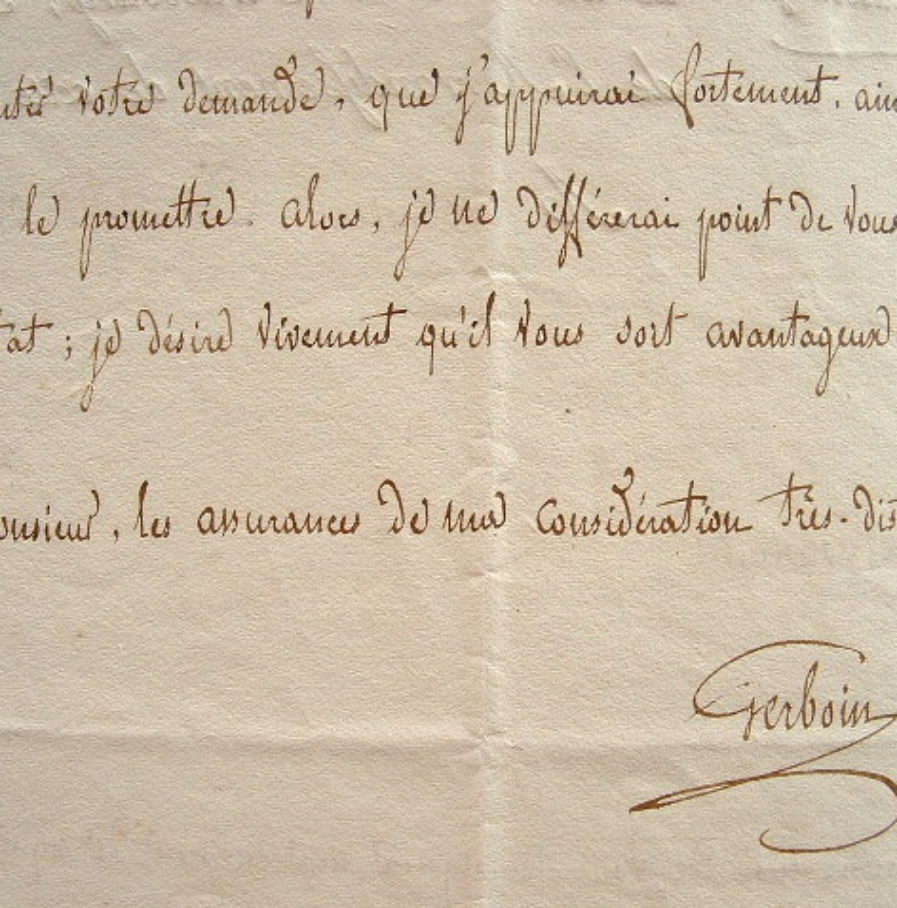 utés votre demande, que j'appuirai fortement, ain
le promettre. alors, je ne différerai point de vous
tat ; je désire vivement qu'il vous sort avantageux
onsieur, les assurances de ma considération très-dis
Gerboin